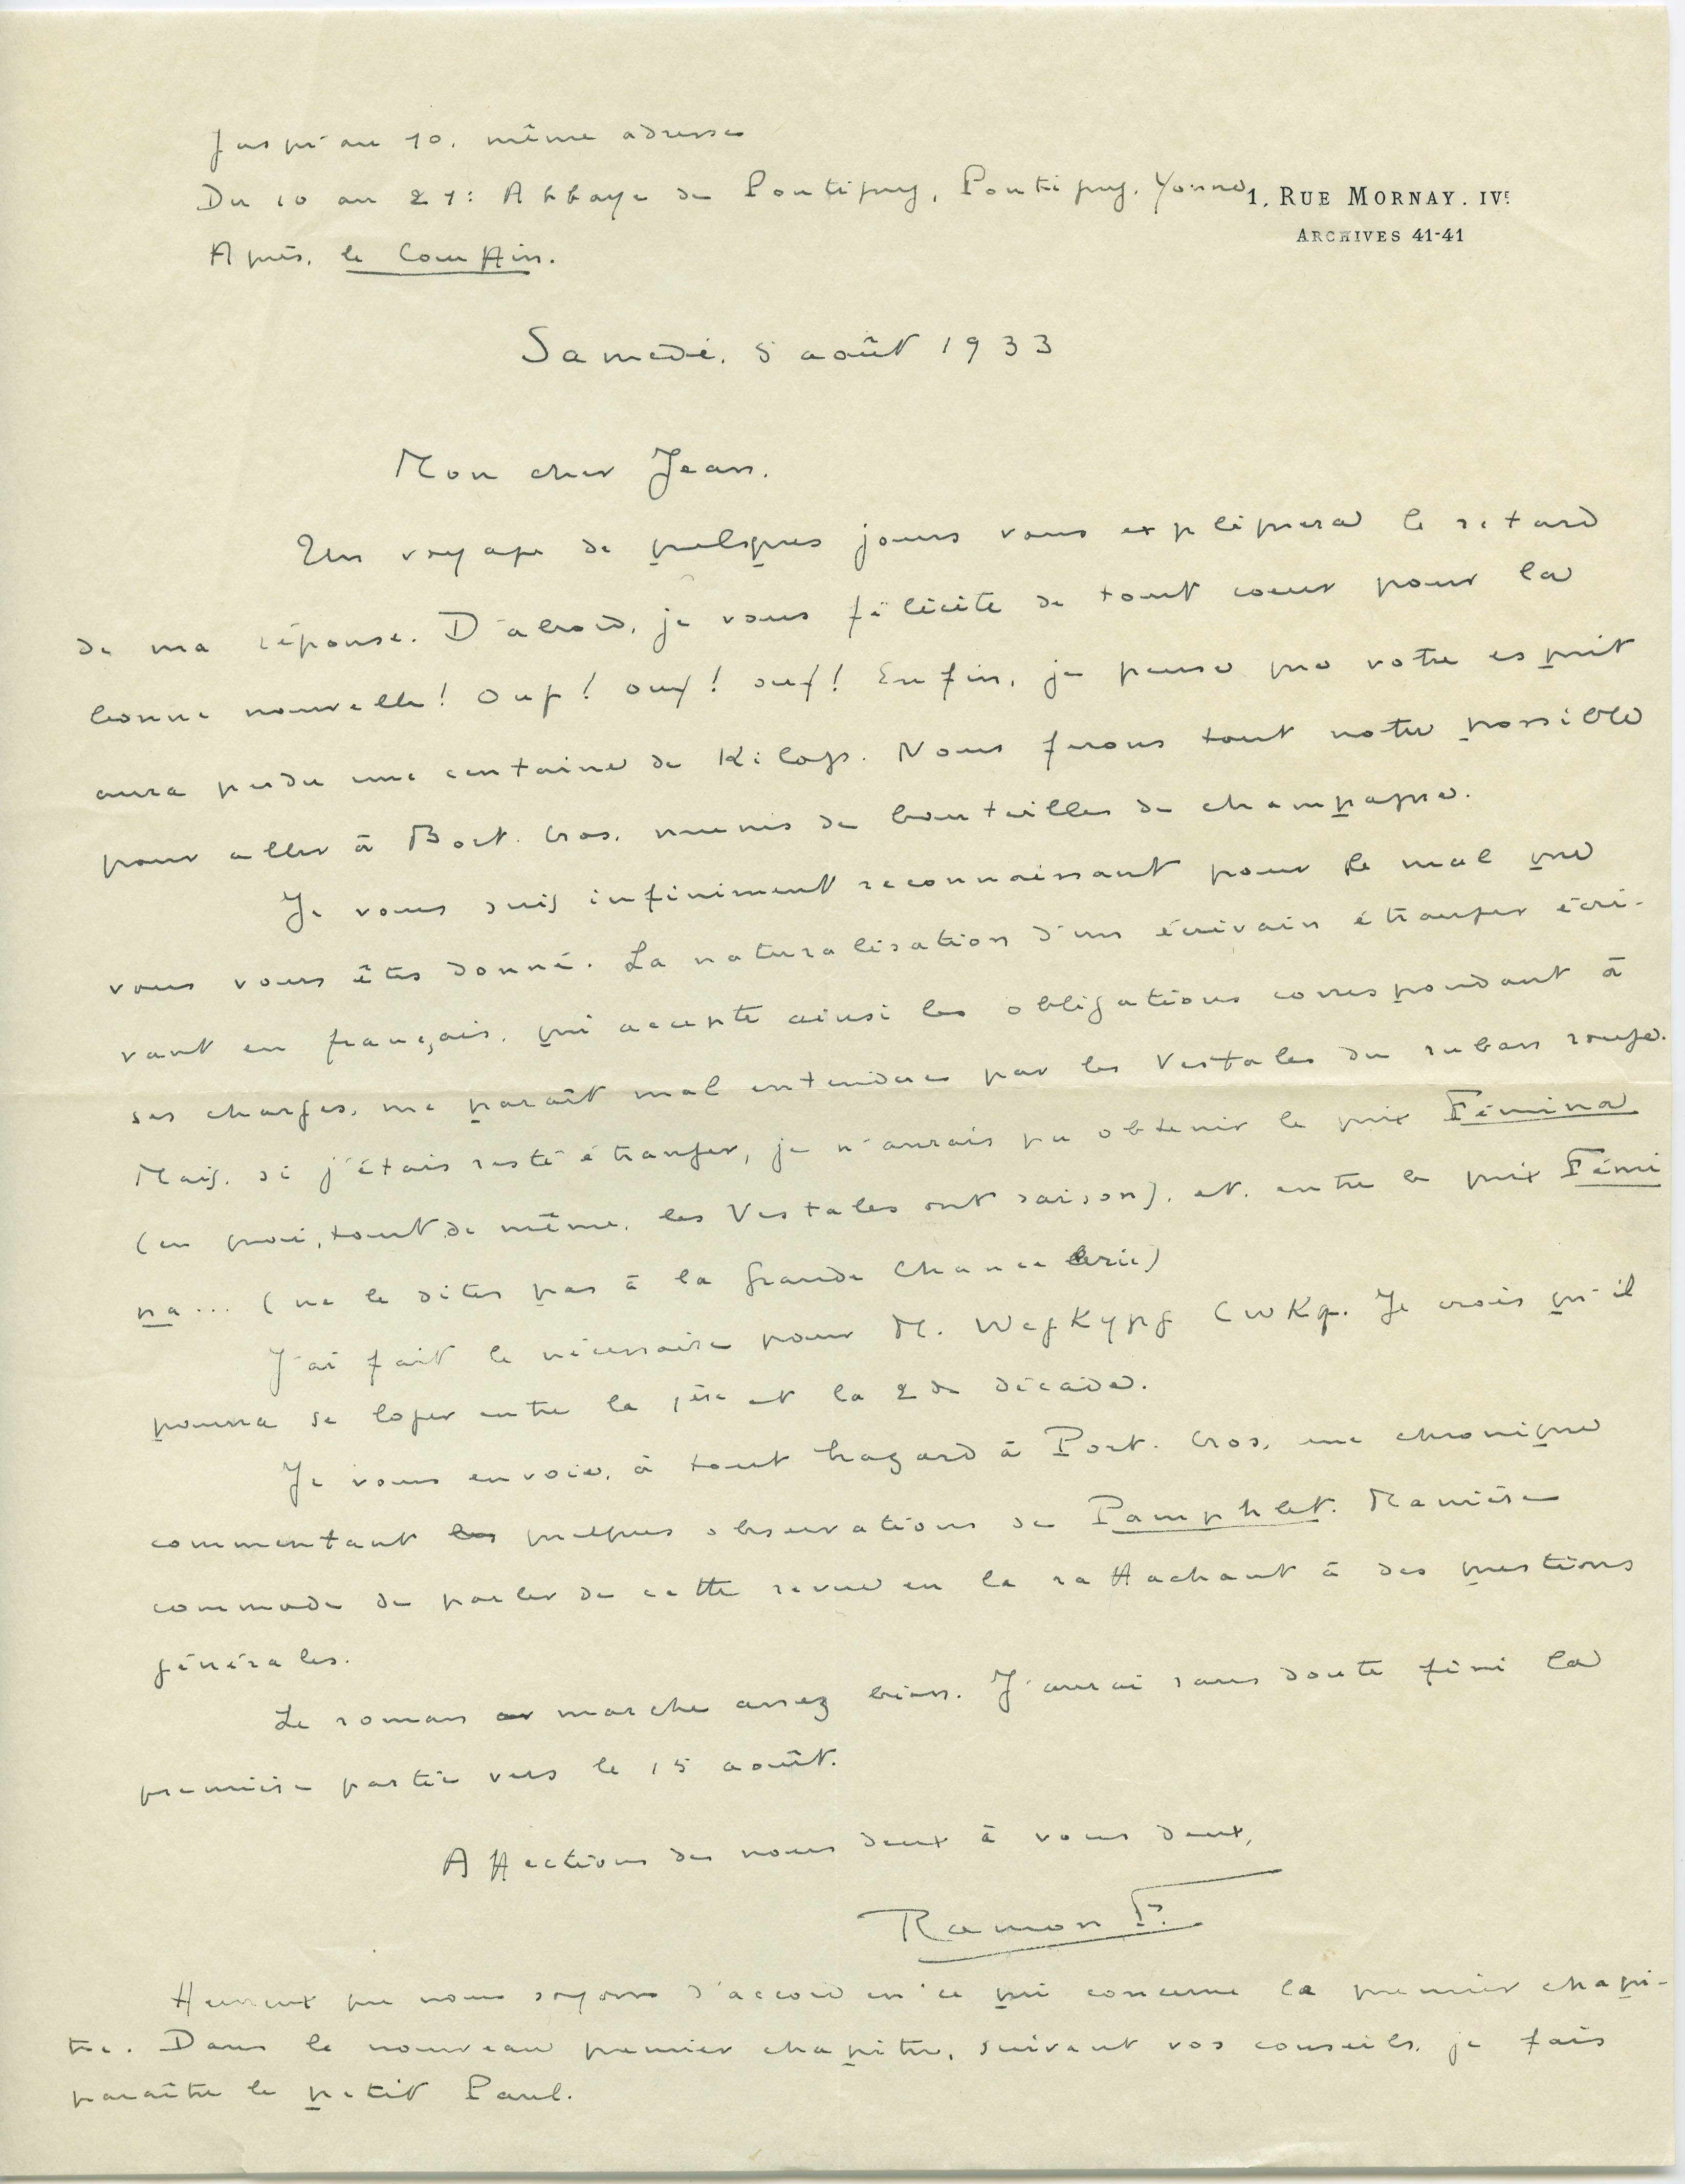 Jusqu'au 10. même adresse
Du 10 au 21: Abbaye de Pontigny, Pontigny. Yonne
1, RUE MORNAY. IVE
ARCHIVES 41-41
Après,
Samedi. 5 août 1933
Mon cher Jean.
Un voyage de quelques jours vous expliquera le retard
de ma réponse. D'abord, je vous félicite de tout coeur pour la
bonne nouvelle! Ouf! ouf! ouf! Enfin, je pense que votre esprit
aura perdu une centaine de Kilogs. Nous ferons tout notre possible
pour aller à Port. Cros, munis de bouteilles de champagne.
Je vous suis infiniment reconnaissant pour le mal que
vous vous êtes donné. La naturalisation d'un écrivain étranger écri-
vant en français, qui accepte ainsi les obligations correspondant à
ses charges, me paraît mal entendue par les Vestales du ruban rouge.
Mais, si j'étais resté étranger, je n'aurais pu obtenir le prix Fémina
(en quoi, tout de même, les Vestales ont raison), et, entre le prix Fémi
na... (ne le dites pas à la Grande Chancellerie)
J'ai fait le nécessaire pour M. Je crois qu'il
pourra se loger entre la 1ère et la 2de décade.
Je vous envoie, à tout hazard à Port. Cros, une chronique
commentant les quelques observations de Pamphlet. Manière
commode de parler de cette revue en la rattachant à des questions
générales.
Le roman marche assez bien. J'aurai sans doute fini la
première partie vers le 15 août.
Affections de nous deux à vous deux,
Ramon F.
Heureux que nous soyons d'accord en ce qui concerne le premier chapi-
tre. Dans le nouveau premier chapitre, suivant vos conseils, je fais
paraître le petit Paul.